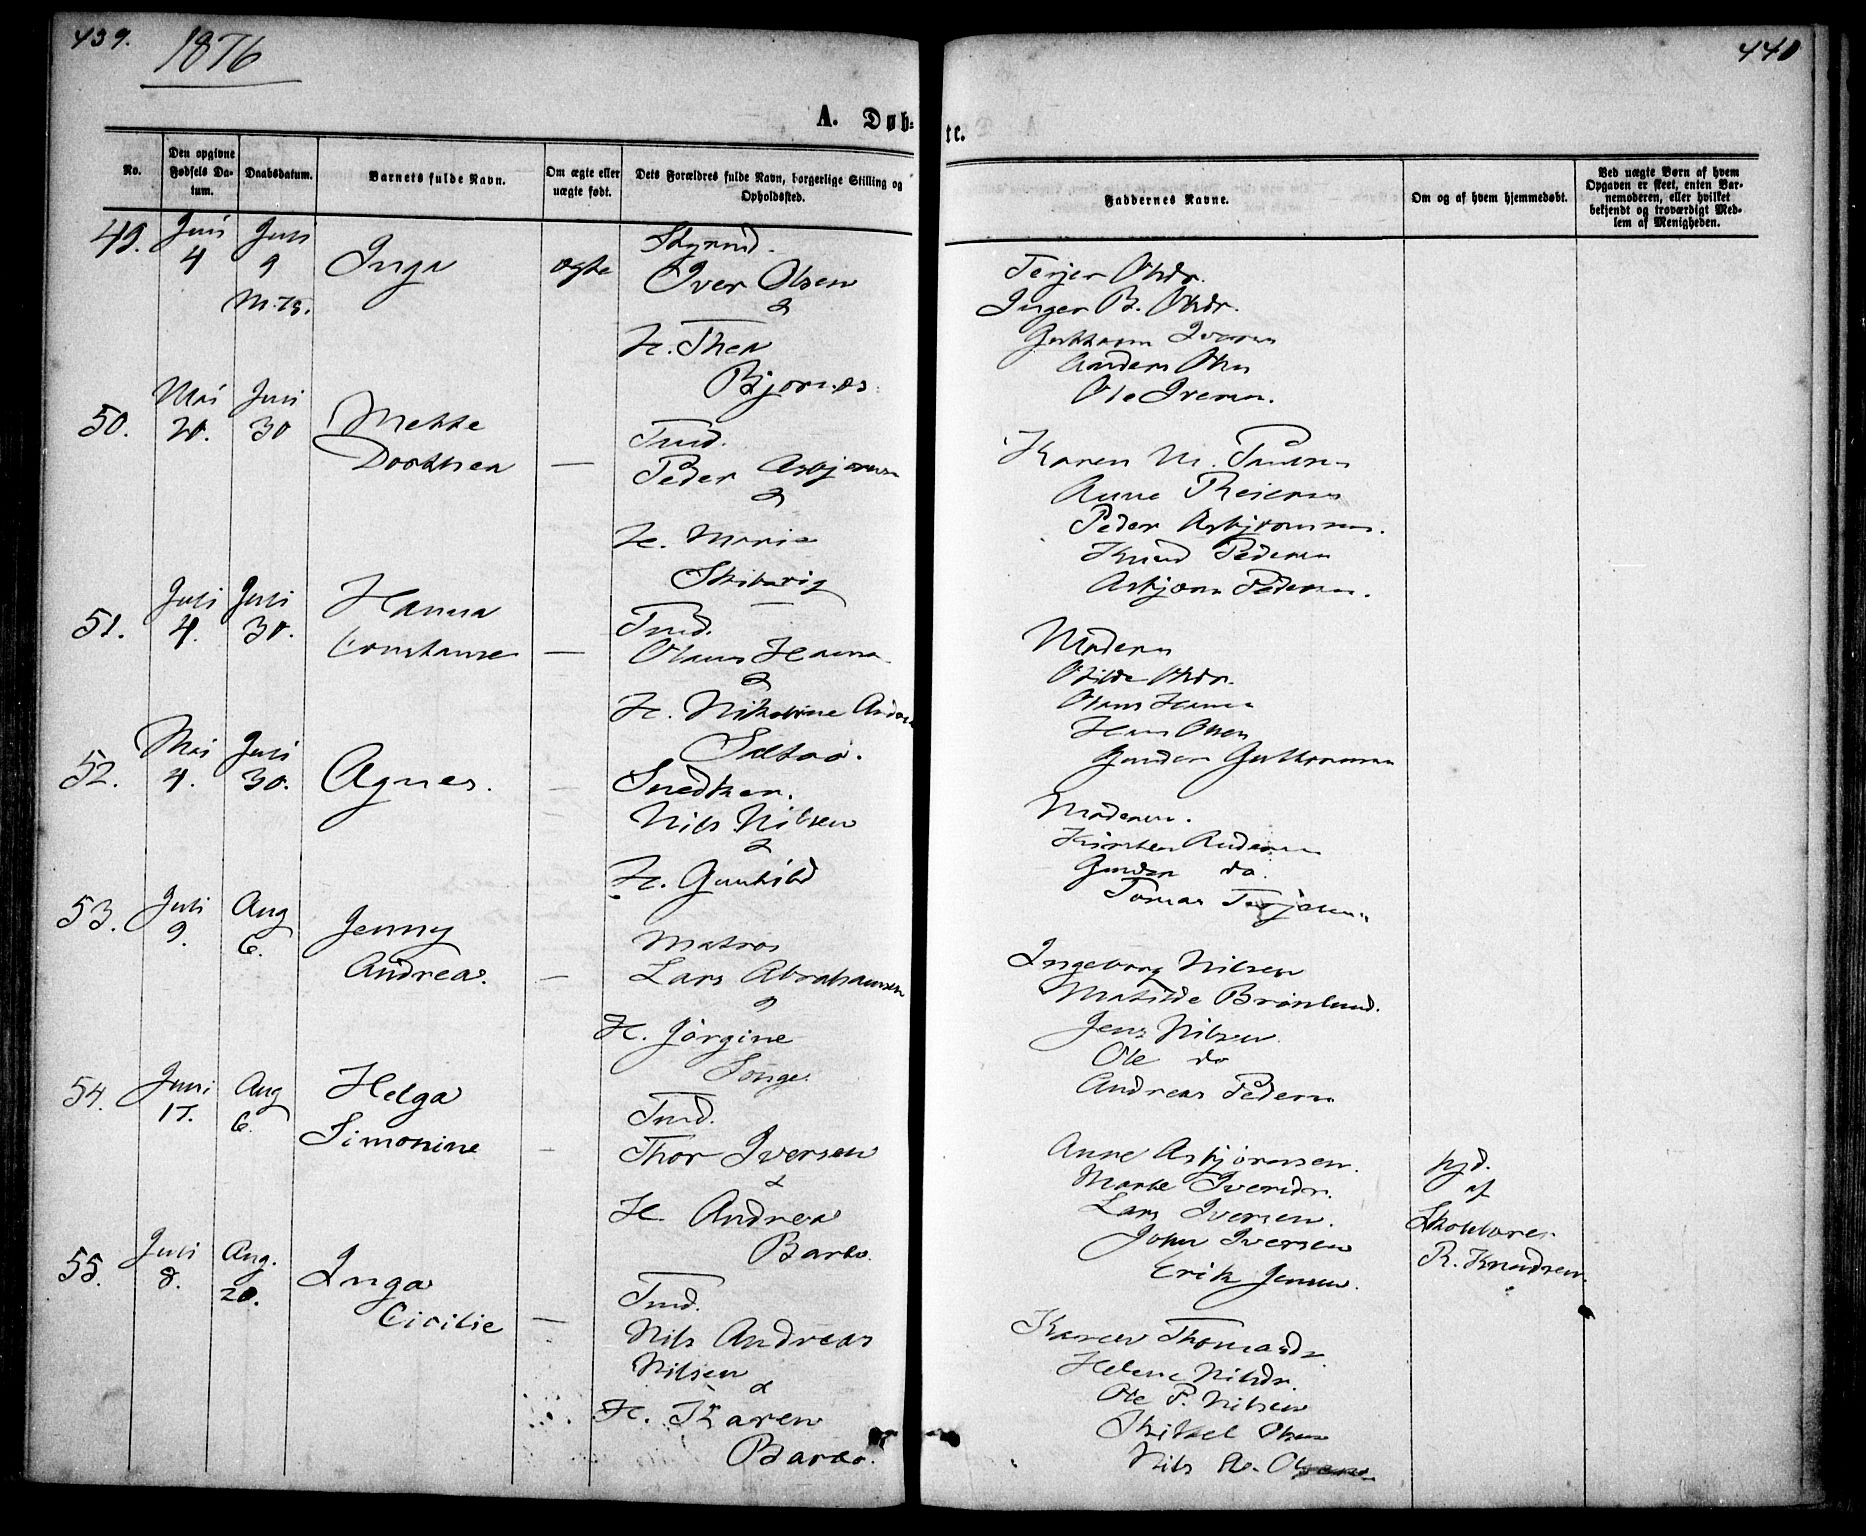 439.
1876
A. Døb-
No.
Den opgivne Fødsels Da-tum.
Daabsdatum.
Barnets fulde Navn.
Om ægte eller uægte født.
Dets Forældres fulde Navn, borgerlige Stilling og Opholdssted.
49.
Juni 4
Juli 9
Inga
ægte
Iver Olsen
&
H. Thea
50.
Mai 20.
Juli 30
Mekke
Dorthea
—
Tmd.
Peder Asbjørnsen
&
H. Maria
Skibvig
51.
Juli 4.
Juli 30.
Hanna
Constanse
—
Tmd.
Olaus Hansen
&
H. Nikoline
52.
Mai 4.
Juli 30.
Agnes.
—
Snedker.
Nils Nilsen
&
H. Gunhild
53.
Juli 9.
Aug 6.
Jenny
Andrea.
—
Matros
Lars Abrahamsen
&
H. Jørgine
Songe.
54.
Juni 17.
Aug 6.
Helga
Simonine
—
Tmd.
Thor Iversen
&
H. Andrea
Barbo.
55.
Juli 8.
Aug. 20.
Inga
Cicilie
—
Tmd.
Nils Andreas
Nilsen
&
H. Karen
Barbo.
440
te.
Faddernes Navne.
Om og af hvem hjemmedøbt.
Ved uægte Børn af hvem
Opgaven er skeet, enten Bar-
nemoderen, eller hvilket
bekjendt og troværdigt Med-
lem af Menigheden.
Terjer Olsdr.
Inger B. Olsdr.
Guttorm Iversen
Anders Olsen
Ole Iversen.
Karen M.
Anne
Peder Asbjørnsen.
Knud Pedersen
Asbjørn Pedersen.
Moderen
Olsdr.
Olaus Hansen
Hans Olsen
Gunder Guttormsen
Moderen.
Kirsten Andersen
Gunder do.
Tomas Terjesen.
Ingeborg Nilsen
Matilde Brønlund.
Jens Nilsen.
Ole do
Andreas Pedersen
Anne Asbjørnsen.
Marte Iversdr.
Lars Iversen.
John Iversen
Erik Jensen.
hjd.
af
R. Knudsen.
Karen Thomasdr.
Helene Nilsdr.
Ole P. Nilsen
Kittel Olsen
Nils A. Olsen